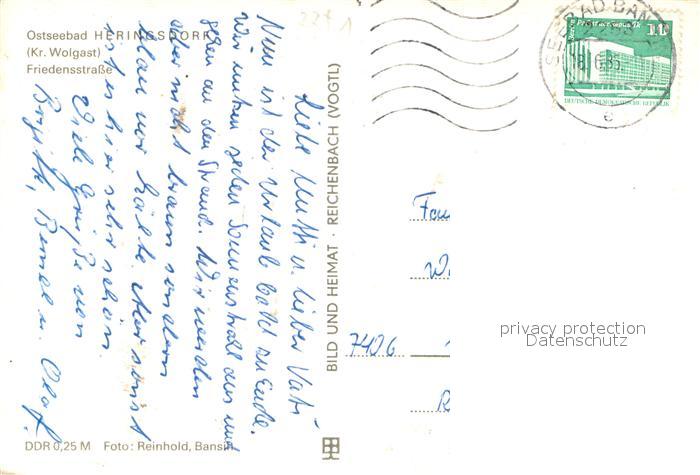 Ostseebad HERINGSDORF
(Kr. Wolgast)
Friedensstraße
224
Liebe Mutti u. lieber Vati
Nun ist der Urlaub bald zu Ende.
Wir nutzen jeden Sonnenstrahl aus und
gehen an den Strand. Wir werden
aber nicht braun sondern
blau vor Kälte. Aber sonst
ist es hier sehr schön.
Viele Grüße von
Birgit, Bernd u. Olaf.
BILD UND HEIMAT · REICHENBACH (VOGTL)
DDR 0,25 M Foto: Reinhold, Bansin
SEEBAD BANSIN
18.6.85
e
10
DEUTSCHE DEMOKRATISCHE REPUBLIK
7406
privacy protection
Datenschutz